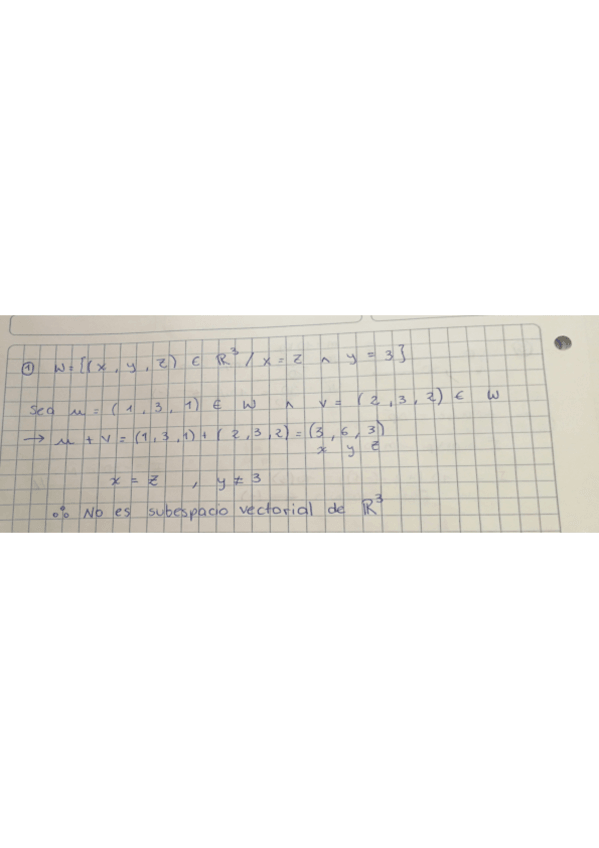 ① W={(x, y, z) ∈ ℝ³ / x = z ∧ y = 3}
Sea u = (1, 3, 1) ∈ W ∧ v = (2, 3, 2) ∈ W
→ u + v = (1, 3, 1) + (2, 3, 2) = (3, 6, 3)
x y z
x = z , y ≠ 3
∴ No es subespacio vectorial de ℝ³